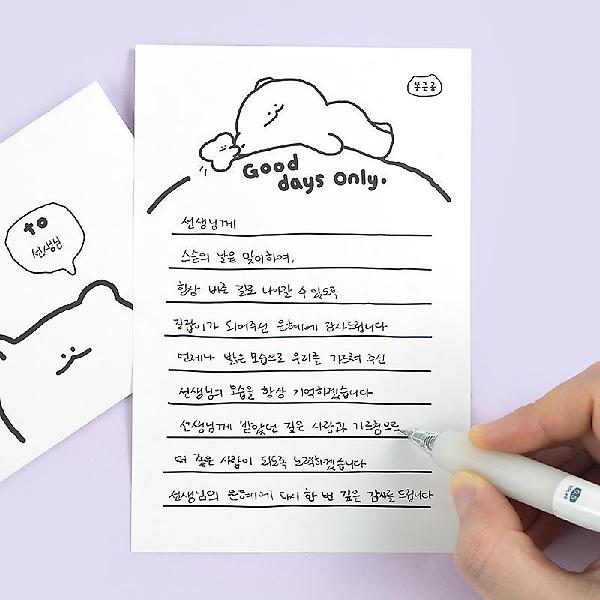 뭉근곰
Good
days Only.
to
선생님
선생님께
스승의 날을 맞이하여,
항상 바른 길로 나아갈 수 있도록
길잡이가 되어주던 은혜에 감사드립니다
언제나 밝은 모습으로 우리를 가르쳐 주신
선생님의 모습을 항상 기억하겠습니다
선생님께 받았던 깊은 사랑과 가르침으로
더 좋은 사람이 되도록 노력하겠습니다
선생님의 은혜에 다시 한 번 깊은 감사를 드립니다